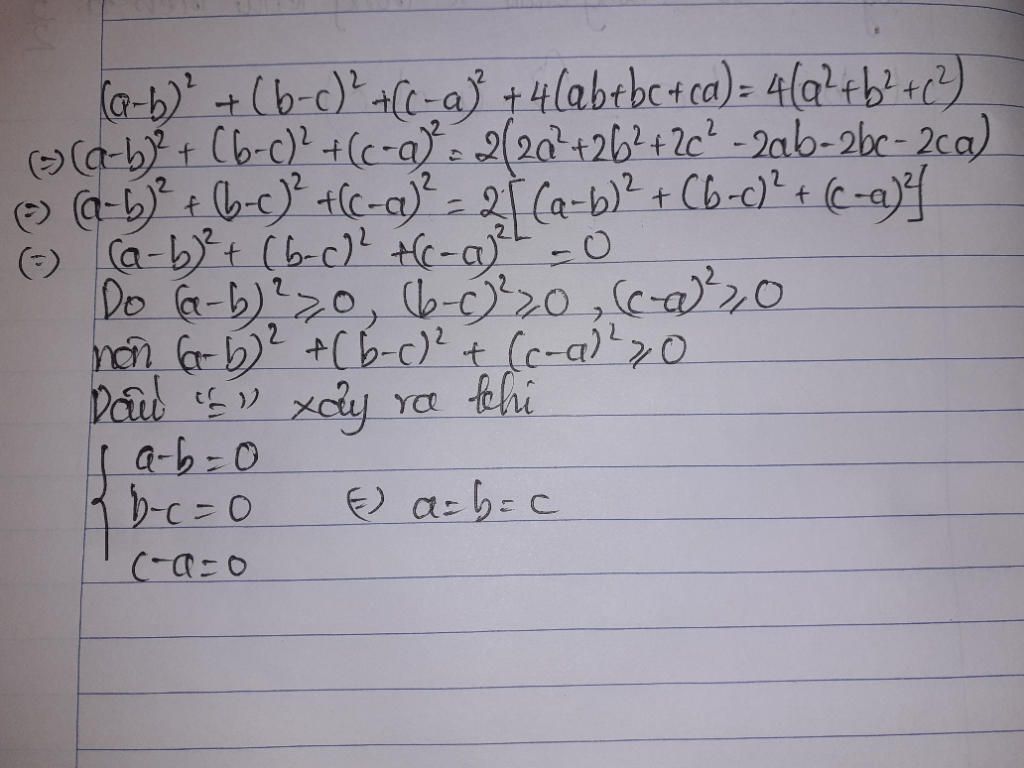 (a-b)² + (b-c)² + (c-a)² + 4(ab+bc+ca) = 4(a²+b²+c²)
(=) (a-b)² + (b-c)² + (c-a)² = 2(2a²+2b²+2c² - 2ab - 2bc - 2ca)
(=) (a-b)² + (b-c)² + (c-a)² = 2[(a-b)² + (b-c)² + (c-a)²]
(=) (a-b)² + (b-c)² + (c-a)² = 0
Do (a-b)² ≥ 0, (b-c)² ≥ 0, (c-a)² ≥ 0
nên (a-b)² + (b-c)² + (c-a)² ≥ 0
Dấu "=" xảy ra khi
{ a-b = 0
b-c = 0 (=) a = b = c
c-a = 0